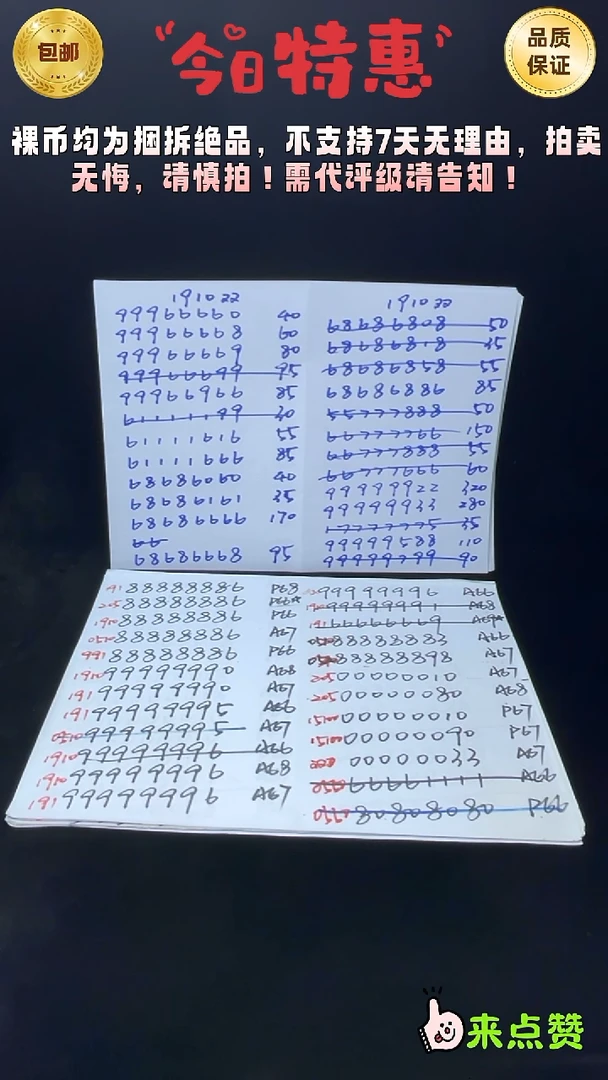 包邮
今日特惠
品质
保证
裸币均为捆拆绝品，不支持7天无理由，拍卖
无悔，请慎拍！需代评级请告知！
191022
99966660 40
99966668 60
99966669 80
99966699 95
99966966 85
61111199 20
61111616 55
61111666 85
68686060 40
68686161 35
68686666 170
66
68686668 95
191022
68686808 50
68686818 45
68686858 55
68686886 85
55777888 50
66777766 150
66777888 55
66777666 60
99999922 320
99999933 280
17777775 35
99999588 110
99999799 90
191 88888886 P68
205 88888886 P66★
1910 88888886 P66
0510 88888886 A67
991 88888886 P66
1910 99999990 A68
191 99999990 A67
191 99999995 A66
0510 99999995 A67
1910 99999996 A66
1910 99999996 A68
191 99999996 A67
99999996 A66
99999991 A68
191 66666669
88888883 A66
88888898 A67
205 00000010 A67
205 00000080 A68
1510 00000010 P67
1510 00000090 P67
00000033 A67
66661111 A66
80808080 P66
来点赞